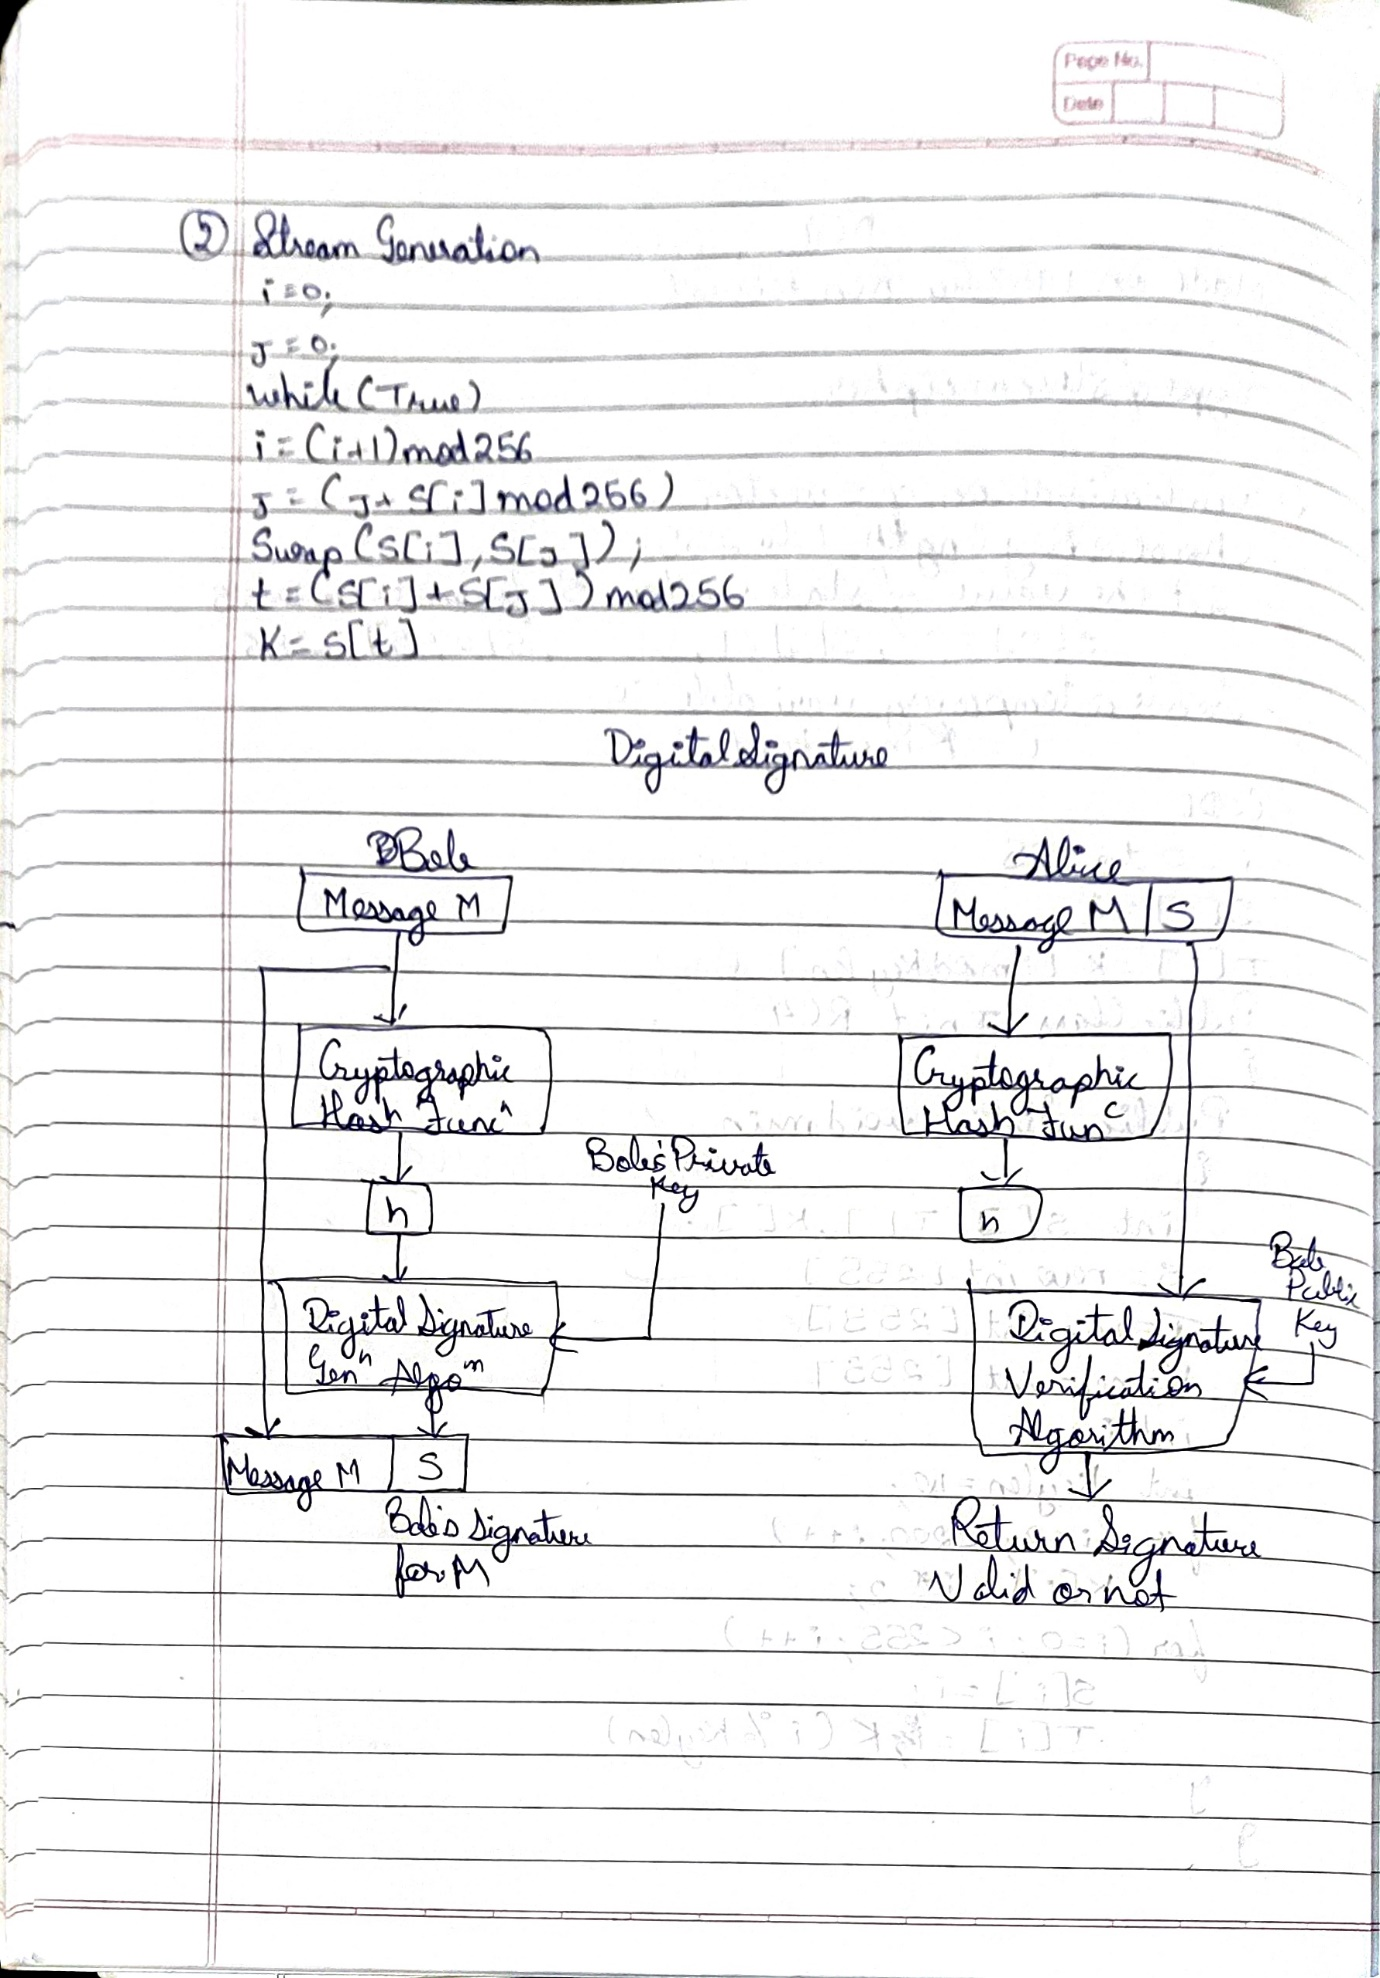 Page No.
Date
② Stream Generation
i=0;
J=0;
while (True)
i = (i+1) mod 256
J = (J + S[i] mod 256)
Swap (S[i], S[J]);
t = (S[i] + S[J]) mod 256
K = S[t]
Digital Signature
Bob
Message M
Cryptographic
Hash Funcⁿ
h
Bob's Private
Key
Digital Signature
Genⁿ Algoᵐ
Message M S
Bob's Signature
for M
Alice
Message M S
Cryptographic
Hash Funᶜ
h
Bob
Public
Key
Digital Signature
Verification
Algorithm
Return Signature
Valid or not